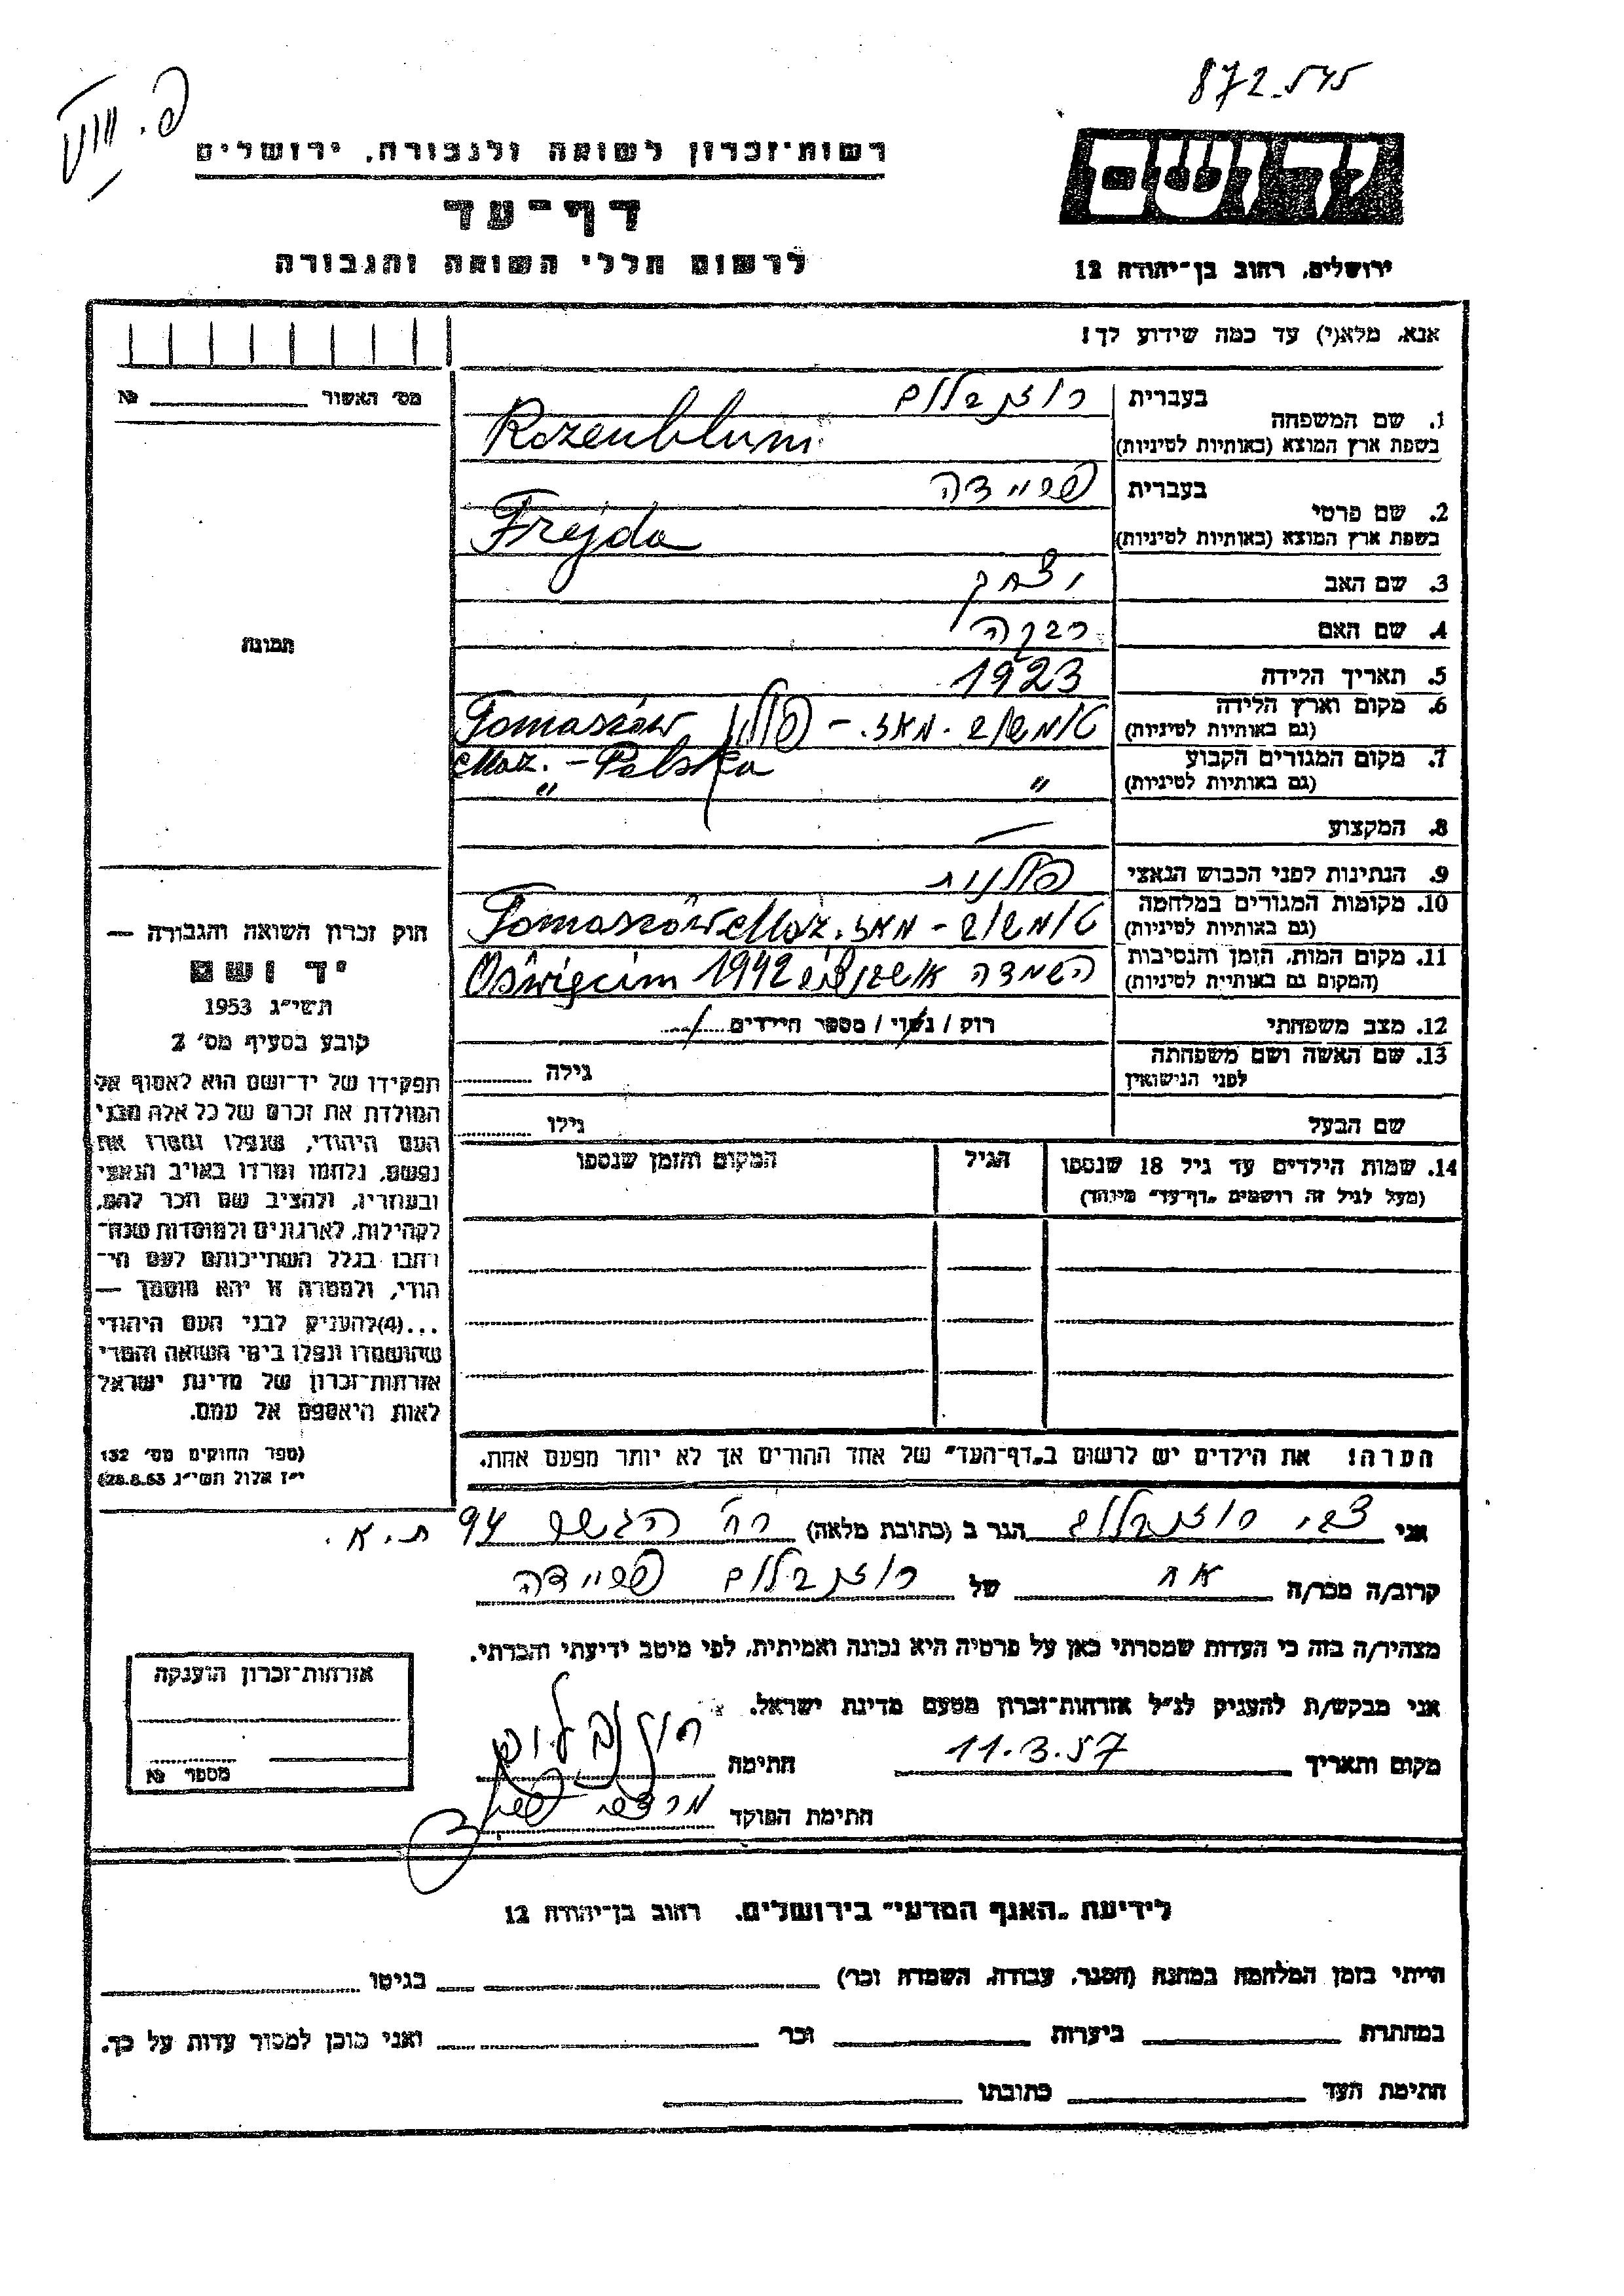 872545
רשות־זכרון לשואה ולגבורה, ירושלים
ד ף ־ ע ד
לרשום חללי השואה והגבורה
יד ושם
ירושלים, רחוב בן־יהודה 12
אנא, מלא(י) עד כמה שידוע לך!
מס׳ האשור № 
1. שם המשפחה
בעברית רוזנבלום
בשפת ארץ המוצא (באותיות לטיניות) Rozenblum
2. שם פרטי
בעברית פריידה
בשפת ארץ המוצא (באותיות לטיניות) Frejda
3. שם האב יצחק
4. שם האם רבקה
5. תאריך הלידה 1923
6. מקום וארץ הלידה
(גם באותיות לטיניות) טומשוב ־ מאז. – פולין Tomaszów
Maz. – Polska
7. מקום המגורים הקבוע
(גם באותיות לטיניות) " "
8. המקצוע —
9. הנתינות לפני הכבוש הנאצי פולנית
10. מקומות המגורים במלחמה
(גם באותיות לטיניות) טומשוב – מאז. Tomaszów Maz.
11. מקום המות, הזמן והנסיבות
(המקום גם באותיות לטיניות) השמדה אושוינצ׳ים 1942 Oświęcim
12. מצב משפחתי רוק / נשוי / מספר הילדים
13. שם האשה ושם משפחתה
לפני הנישואין גילה
שם הבעל גילו
14. שמות הילדים עד גיל 18 שנספו
(מעל לגיל זה רושמים „דף־עד״ מיוחד)
הגיל
המקום והזמן שנספו
הערה! את הילדים יש לרשום ב„דף־העד״ של אחד ההורים אך לא יותר מפעם אחת.
תמונה
חוק זכרון השואה והגבורה —
יד ושם
תשי״ג 1953
קובע בסעיף מס׳ 2
תפקידו של יד־ושם הוא לאסוף אל
המולדת את זכרם של כל אלה מבני
העם היהודי, שנפלו ומסרו את
נפשם, נלחמו ומרדו באויב הנאצי
ובעוזריו, ולהציב שם וזכר להם,
לקהילות, לארגונים ולמוסדות שנח־
רבו בגלל השתייכותם לעם הי־
הודי, ולמטרה זו יהא מוסמך —
...(4)להעניק לבני העם היהודי
שהושמדו ונפלו בימי השואה והמרי
אזרחות־זכרון של מדינת ישראל
לאות היאספם אל עמם.
(ספר החוקים מס׳ 132
י״ז אלול תשי״ג 28.8.53)
אני צבי רוזנבלום הגר ב (כתובת מלאה) רח׳ 94 ת.א.
קרוב/ה מכר/ה אח של רוזנבלום פריידה
מצהיר/ה בזה כי העדות שמסרתי כאן על פרטיה היא נכונה ואמיתית, לפי מיטב ידיעתי והכרתי.
אני מבקש/ת להעניק לנ״ל אזרחות־זכרון מטעם מדינת ישראל.
מקום ותאריך 11.3.57 חתימה רוזנבלום
חתימת הפוקד
אזרחות־זכרון הוענקה
מספר №
לידיעת „האגף המדעי״ בירושלים, רחוב בן־יהודה 12
הייתי בזמן המלחמה במחנה (הסגר, עבודה, השמדה וכו׳) בגיטו
במחתרת ביערות וכו׳ ואני מוכן למסור עדות על כך.
חתימת העד כתובתו